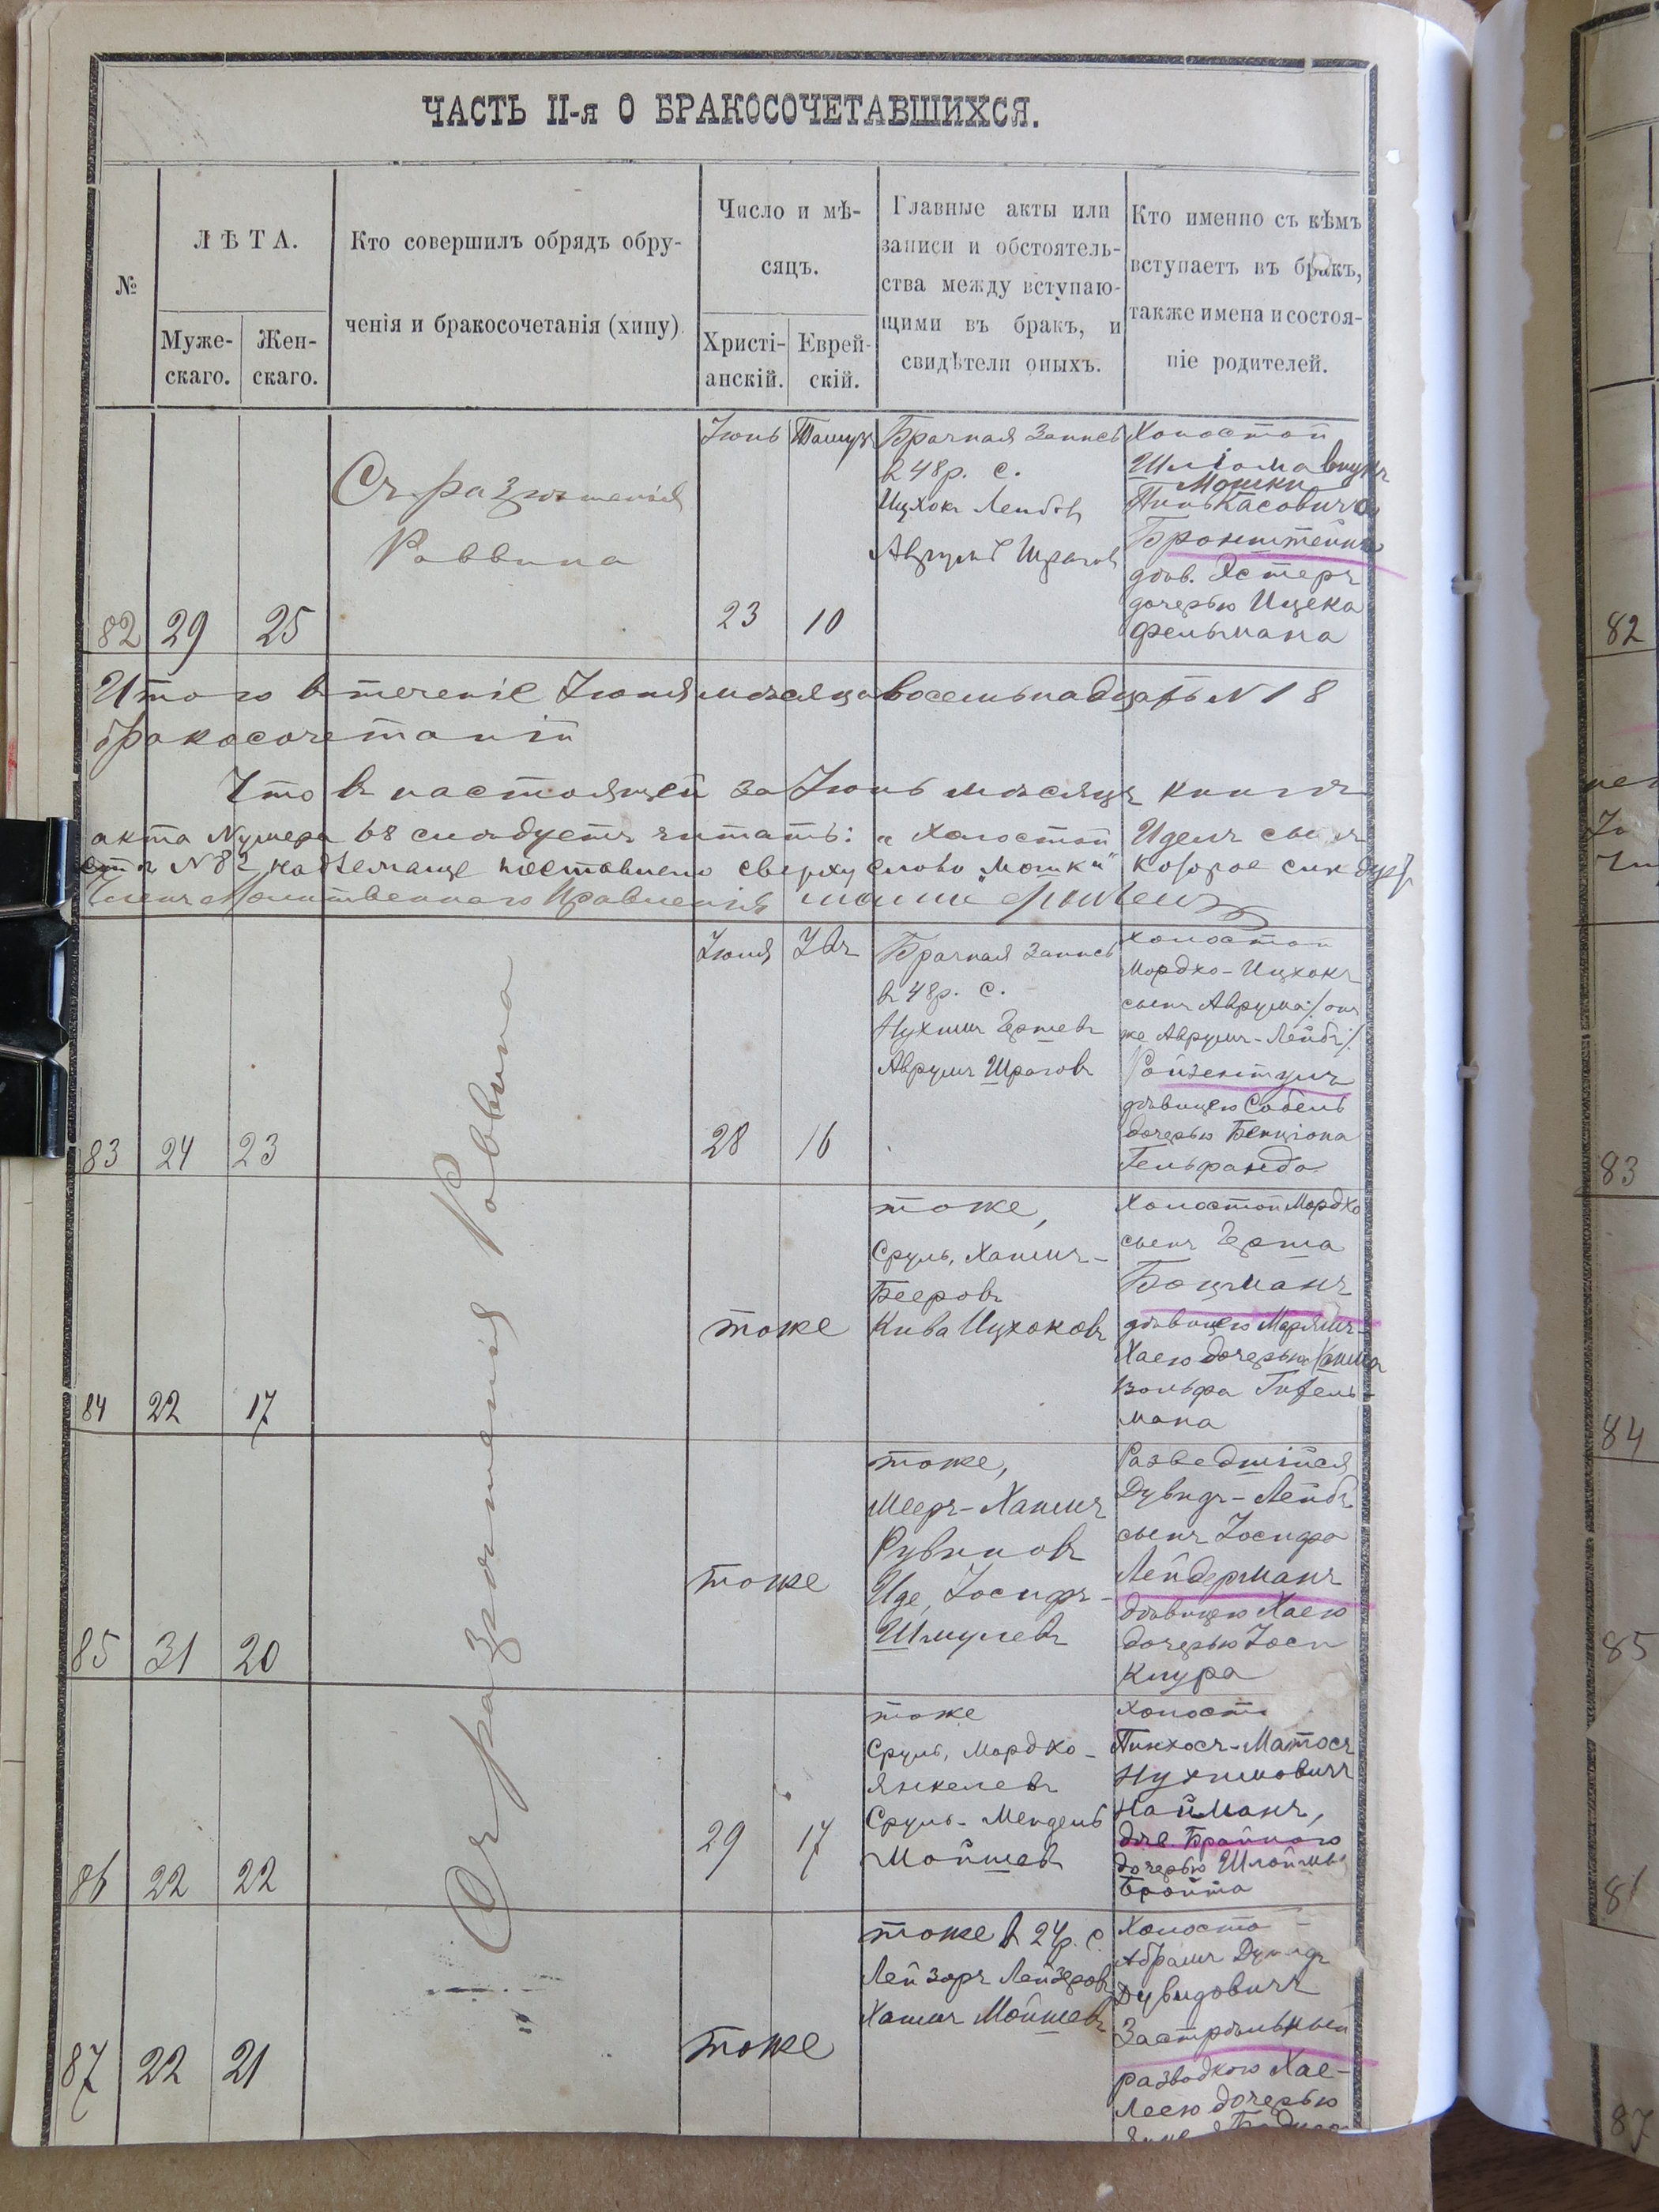 ЧАСТЬ II-я О БРАКОСОЧЕТАВШИХСЯ.
№
ЛѢТА.
Муже-
скаго.
Жен-
скаго.
Кто совершилъ обрядъ обру-
ченія и бракосочетанія (хипу)
Число и мѣ-
сяцъ.
Христі-
анскій.
Еврей-
скій.
Главные акты или
записи и обстоятель-
ства между вступаю-
щими въ бракъ, и
свидѣтели оныхъ.
Кто именно съ кѣмъ
вступаетъ въ бракъ,
также имена и состоя-
ніе родителей.
82
29
25
Съ разрѣшенія
Раввина
Іюнь
23
Тамузъ
10
Брачная запись
въ 48 р. с.
Ицхокъ Лейбовъ
Аврумъ Шраговъ
Холостой
Шліома внукъ
Мошки
Пинькасовича
Бронштейнъ
дѣв. Эстеръ
дочерью Ицека
Фельмана
Итого въ теченіе Іюня мѣсяца восемьнадцать N 18
бракосочетаній
Что въ настоящей за Іюнь мѣсяцъ книгѣ
акта Нумера 68 слѣдуетъ читать: „холостой Идель сынъ
N 82 надлежаще поставлено сверху слово „Мошки" которое
Членъ Молитвенного Правленія
83
24
23
Съ разрѣшенія Раввина
Іюня
28
16
Брачная запись
въ 48 р. с.
Нухимъ Гершевъ
Аврумъ Шраговъ
Холостой
Мордко-Ицхокъ
сынъ Аврума /: онъ
же Аврумъ-Лейбъ :/
Ройзентулъ
дѣвицею Собель
дочерью Бенціона
Гельфанда
84
22
17
тоже
тоже,
Сруль, Хаимъ-
Бееровъ
Кива Ицхоковъ
Холостой Мордко
сынъ Герша
Боцманъ
дѣвицею Марьямъ-
Хаею дочерью Хаима
Вольфа Гитель-
мана
85
31
20
тоже
тоже,
Мееръ-Хаимъ
Рувиновъ
Иде, Іосифъ-
Шмулевъ
Разведшійся
Дувидъ-Лейбъ
сынъ Іосифа
Лейдерманъ
дѣвицею Хаею
дочерью Іося
Клура
86
22
22
29
17
тоже
Сруль, Мордко-
Янкелевъ
Сруль-Мендель
Мойшевъ
Холост.
Пинхосъ-Матосъ
Нухимовичъ
Найманъ,
дѣв. Брайною
дочерью Шлоймы
Бройта
87
22
21
тоже
тоже въ 24 р. с.
Лейзоръ Лейзеровъ
Хаимъ Мойшевъ
Холосто-
Абрамъ Дувидъ
Дувидовичъ
Застрѣльный
разводкою Хае-
Леею дочерью
82
83
84
85
87